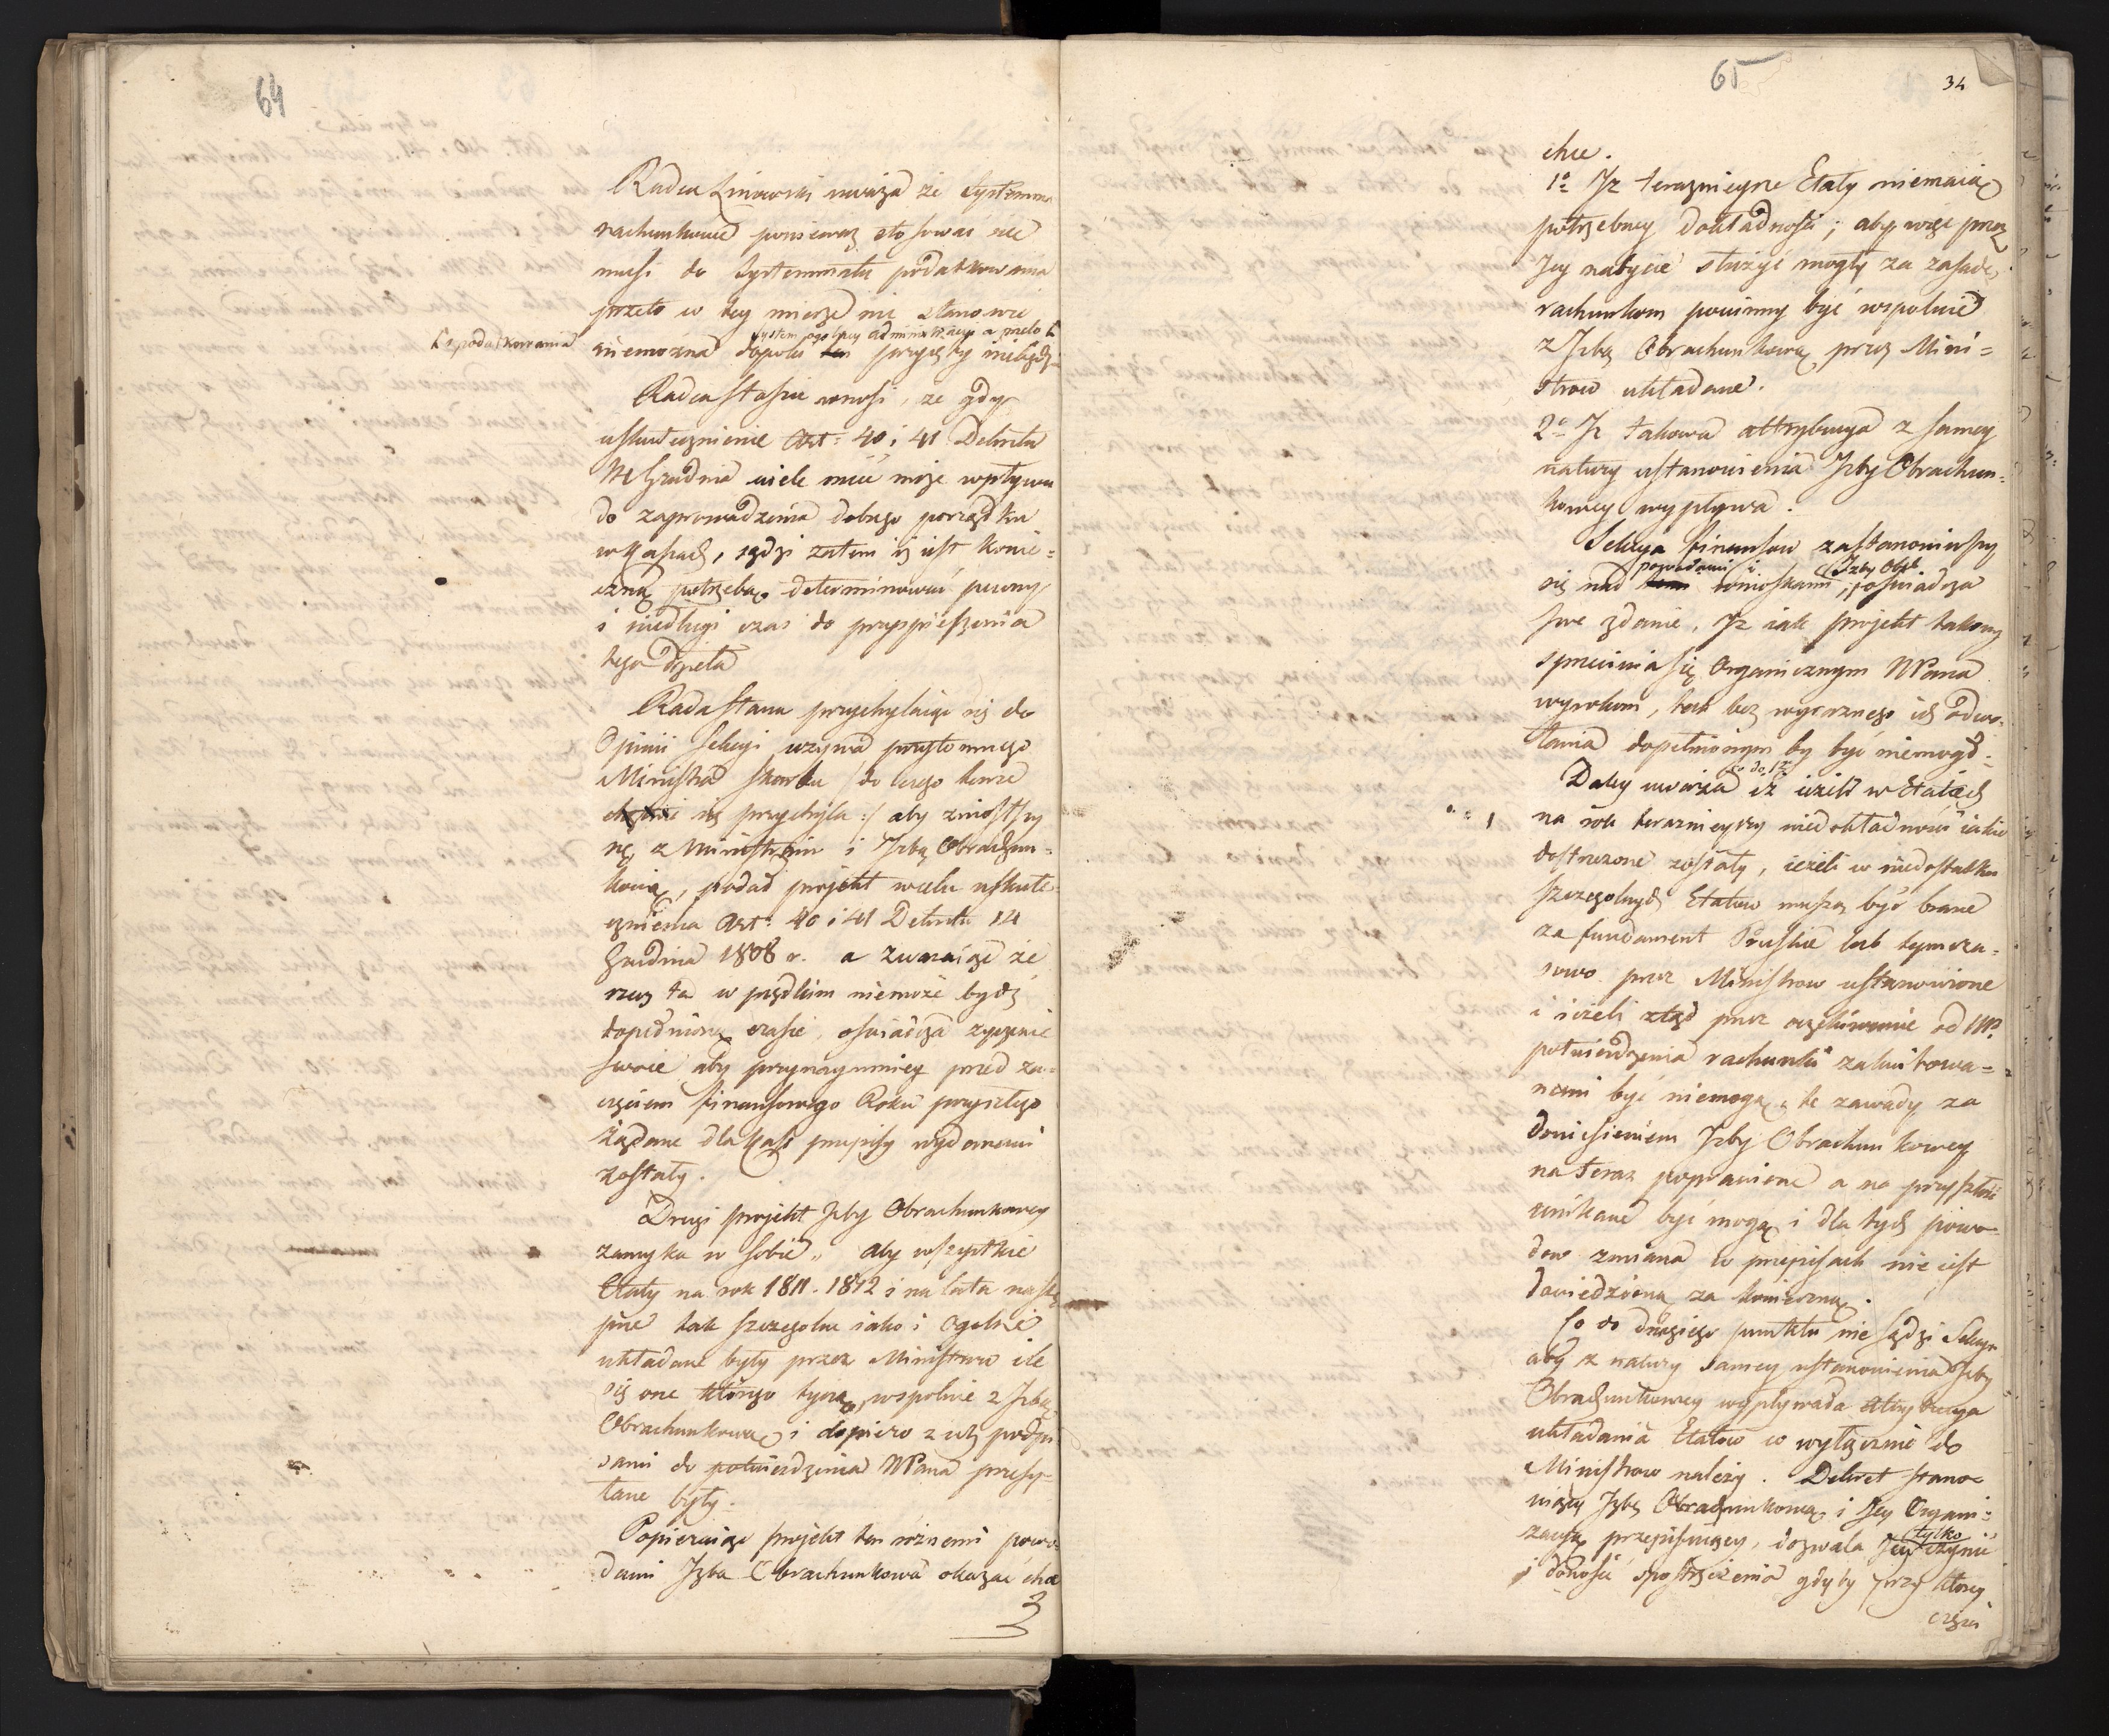 64
Radca Linowski uważa że Systemma
rachunkowe ponieważ stosować się
musi do Systemmatu podatkowania
przeto w tey mierze nic stanowić
system ogolney administracyi a przeto
i opodatkowania
niemożna dopoki ten przyięty niebędzie
Radca Staszic wnosi, że gdy
uskutecznienie Art: 40 i 41 Dekretu
14 Grudnia wiele mieć może wpływu
do zaprowadzenia dobrego porządku
w Kassach, sądzi zatem iż iest konie=
czną potrzebą determinować pewny
i niedługi czas do przyspieszenia
tego dzieła
Rada Stanu przychylaiąc się do
Opinii Sekcyi wzywa przytomnego
Ministra Skarbu /: do czego tenże
chętnie się przychyla :/ aby zniosłszy
się z Ministrem i Izbą Obrachun=
kową, podał projekt wcelu uskute
cznienia Art: 40 i 41 Dekretu 14
Grudnia 1808 r. a zważaiąc że
rzecz ta w prędkim niemoże bydź
dopełnioną czasie, oświadcza życzenie
swoie aby przynaymniey przed za=
częciem finansowego Roku przyszłego
żądane dla Kass przepisy wydanemi
zostały.
Drugi projekt Izby Obrachunkowey
zamyka w sobie „ aby wszystkie
Etaty na rok 1811-1812 i na lata nastę
pne tak szczegolne iako i Ogolne
układane były przez Ministrow ile
się one którego tyczą, wspolnie z Izbą
Obrachunkową i dopiero z ich podpi
sami do potwierdzenia NPana przesy=
łane były.
Popieraiąc projekt ten rożnemi powo=
dami Izba Obrachunkowa okazać chce
65
34
chce.
1o Iż teraznieysze Etaty niemaią
potrzebney dokładności; aby więc przez
Jey nabycie służyć mogły za zasadę
rachunkom powinny być wspolnie
z Izbą Obrachunkową przez Mini=
strow układane.
2o Iż takowa attrybucya z samey
natury ustanowienia Izby Obrachun=
kowey wypływa.
Sekcya finansow zastanowiwszy
powodami i Izby Obr
się nad temi wnioskami, oświadcza
swe zdanie, Iż iak projekt takowy
sprzeciwia się Organicznym NPana
wyrokom, tak bez wyraznego ich odwo=
łania dopełnionym by być niemogł.
co do 1o
Daley uważa iż ieżeli w Etatach
na rok teraznieyszy niedokładności iakie
dostrzeżone zostały, ieżeli w niedostatku
szczegolnych Etatow muszą być brane
za fundament Pruskie lub tymcza=
sowo przez Ministrow ustanowione
i ieżeli ztąd przez oczekiwanie od NP.
potwierdzenia rachunki zakwitowa=
nemi być niemogą, te zawady za
doniesieniem Izby Obrachunkowey
na teraz poprawione a na przyszłość
unikane być mogą i dla tych powo=
dow zmiana w przepisach nie iest
dowiedzioną za konieczną.
Co do drugiego punktu nie sądzi Sekcya
aby z natury samey ustanowienia Izby
Obrachunkowey wypływała attrybucya
układania Etatow co wyłącznie do
Ministrow należy. Dekret stano=
wiący Izbę Obrachunkową i Jey Organi=
tylko
zacyą przepisuiący, dozwala Jey czynić
i donosić spostrzeżenia gdyby przy ktorey
części